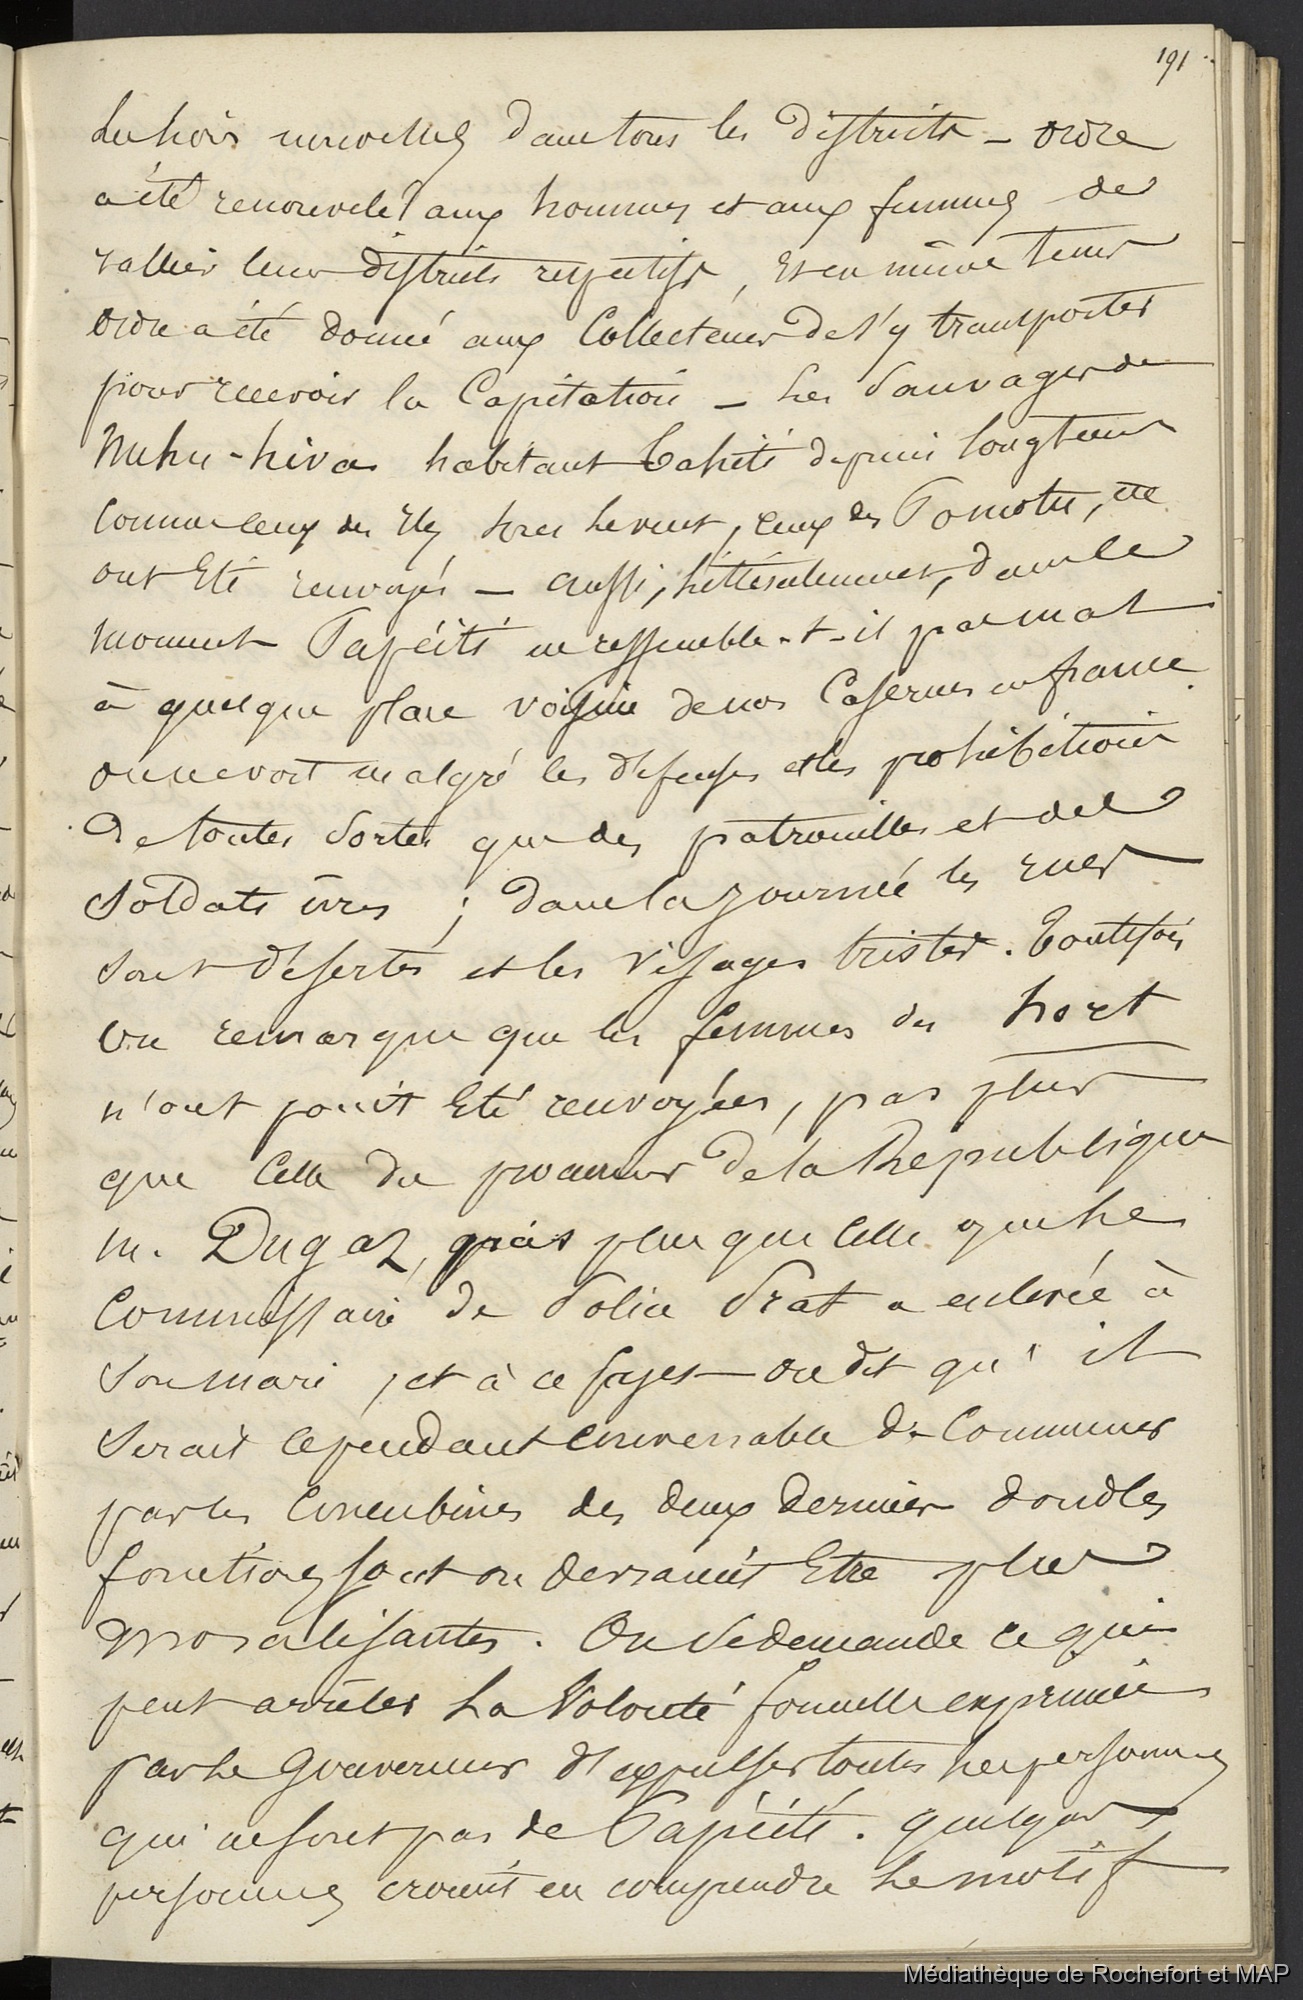 191
Les hois nouvelles dans tous les districts – ordre
a été renouvelé aux hommes et aux femmes de
rallier leurs districts respectifs, et en même tems
ordre a été donné aux Collecteurs de s'y transporter
pour recevoir la Capitation – Les Sauvages de
Nuku-hiva habitant Tahiti depuis longtems
comme ceux des Iles sous le vent, ceux des Pomotu, etc
ont été renvoyés – aussi, littéralement, dans le
moment Papéiti ne ressemble-t-il pas mal
à quelque place voisine de nos Casernes en france
on ne voit malgré les défenses et les prohibitions
de toutes sortes que des patrouilles et des
soldats ivres ; dans la journée les rues
sont désertes et les visages tristes. Toutefois
on remarque que les femmes du hort
n'ont point été renvoyées, pas plus
que celle du procureur de la République
M. Dugaz, pas plus que celle que le
Commissaire de Police Prat a enlevée à
son mari, et à ce sujet on dit qu'il
serait cependant convenable de commencer
par les Concubines des deux derniers dont les
fonctions sont ou devraient être plus
moralisantes. On se demande ce qui
peut arrêter la volonté formelle exprimée
par le Gouverneur d'expulser toutes les personnes
qui ne sont pas de Papéiti. quelques
personnes croient en comprendre le motif
Médiathèque de Rochefort et MAP